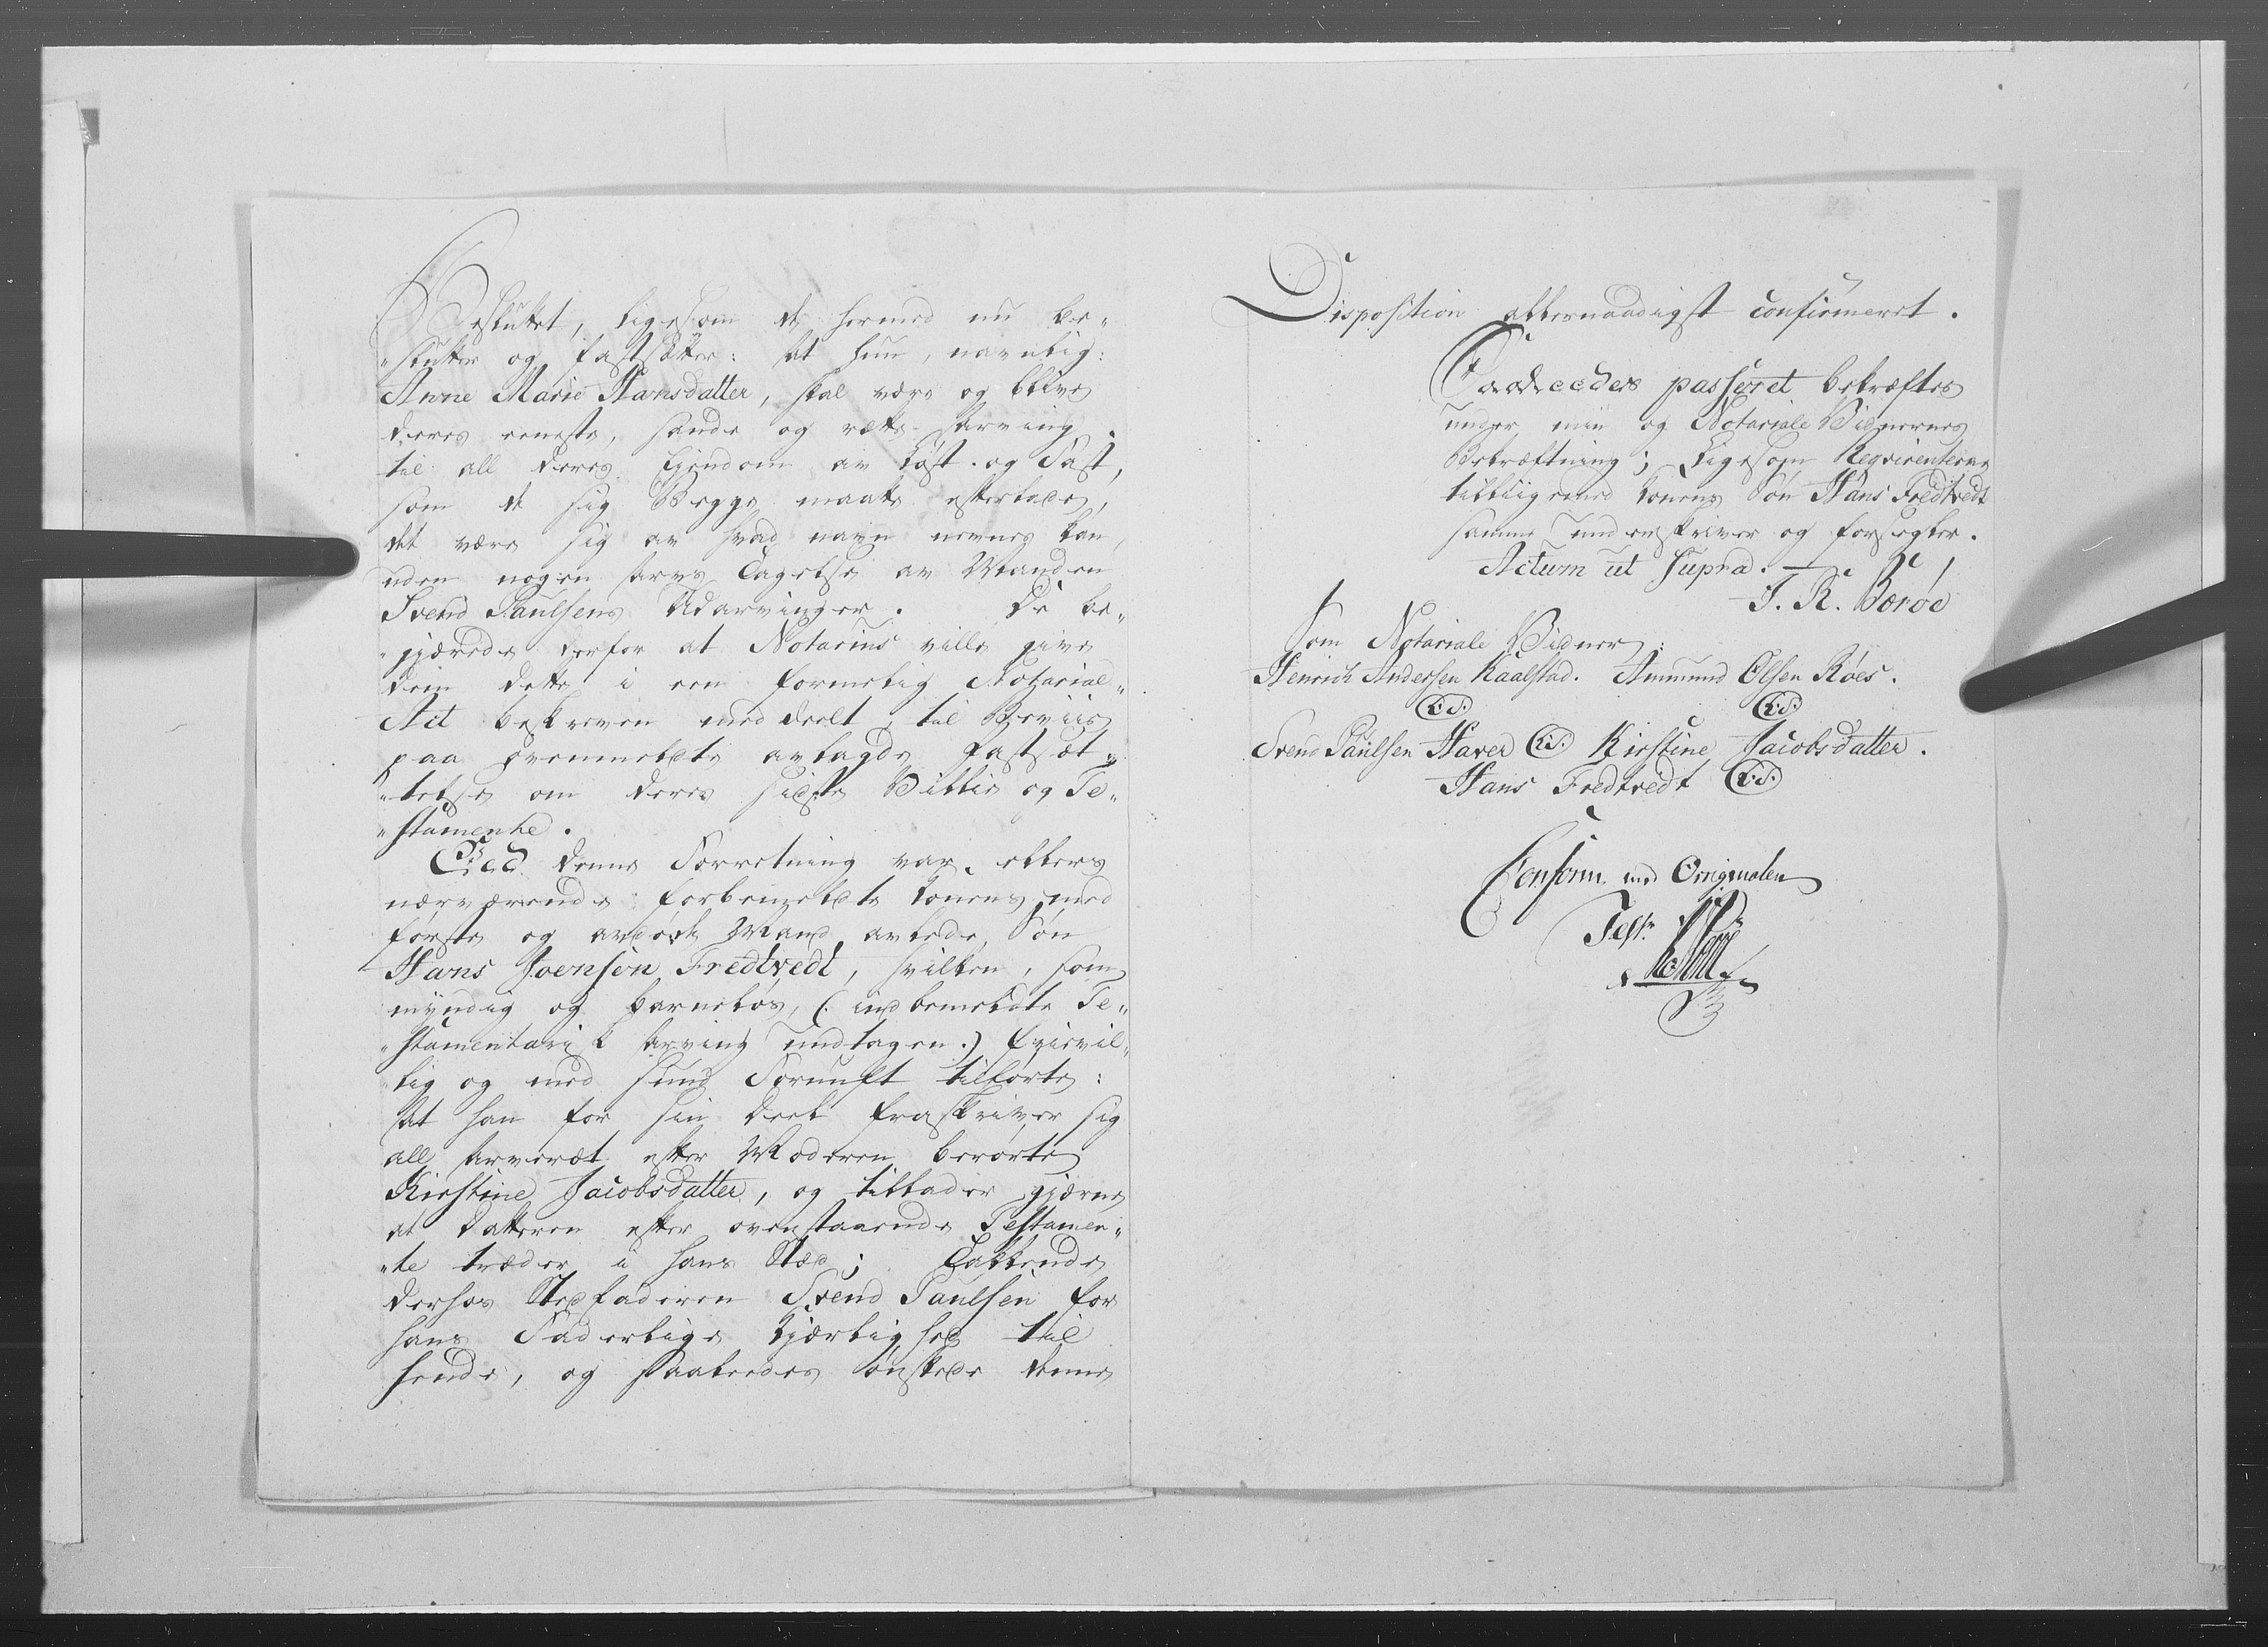 Besluttet, ligesom de hermed nu be„
„slutter og fastsætter: At hun, navnlig:
Anne Marie Hansdatter, skal være og blive
deres eeneste, sande og rette Arving
til all deres Ejendom av Løst og Fast,
som de sig Begge maatte efterlade,
det være sig av hvad navn nevnes kan,
uden nogen Arvs Tagelse av Manden
Svend Paulsens Udarvinger. De be„
„gjærede derfor at Notarius ville give
dem dette i een formelig Notarial„
Act beskreven meddeelt, til Beviis
paa ovenmeldte avlagde Fastsæt„
„telse om deres sidste Villie og Te„
„stamente.
Ved denne Forretning var ellers
nærværende forbemeldte Konens med
første og avdøde Mand avlede Søn
Hans Joensøn Fredtvedt, hvilken, som
myndig og barneløs, (: indbemeldte Te„
„stamentari Arving undtagen:) frievil„
lig og med sund Fornuft tilførte:
At han for sin Deel fraskriver sig
all Arveræt efter Moderen berørte
Kirstine Jacobsdatter, og tillader gjærne
at Datteren efter ovenstaaende Testamen„
„te træder i hans Stæd; Takkende
derhos Stedfaderen Svend Paulsen for
hans Faderlige Kjærlighed til
hende, og saaledes ønskede denne
Disposition allernaadigst confirmeret.
Saaledes passeret bekræftes
under min og Notariale Vidnernes
Bekræftning; Ligesom Reqvirenterne
tilligemed Konens Søn Hans Fredtvedt
samme underskriver og forsegler.
Actum ut supra.
J. R. Barøe
Som Notariale Vidner:
Henrich Andersen Kaalstad. Ammund Olsen Røes.
(L.S.) (L.S.)
Svend Paulsen Haver (L.S.) Kirstine Jacobsdatter.
Hans Fredtvedt (L.S.)
Conform med Originalen
Test: